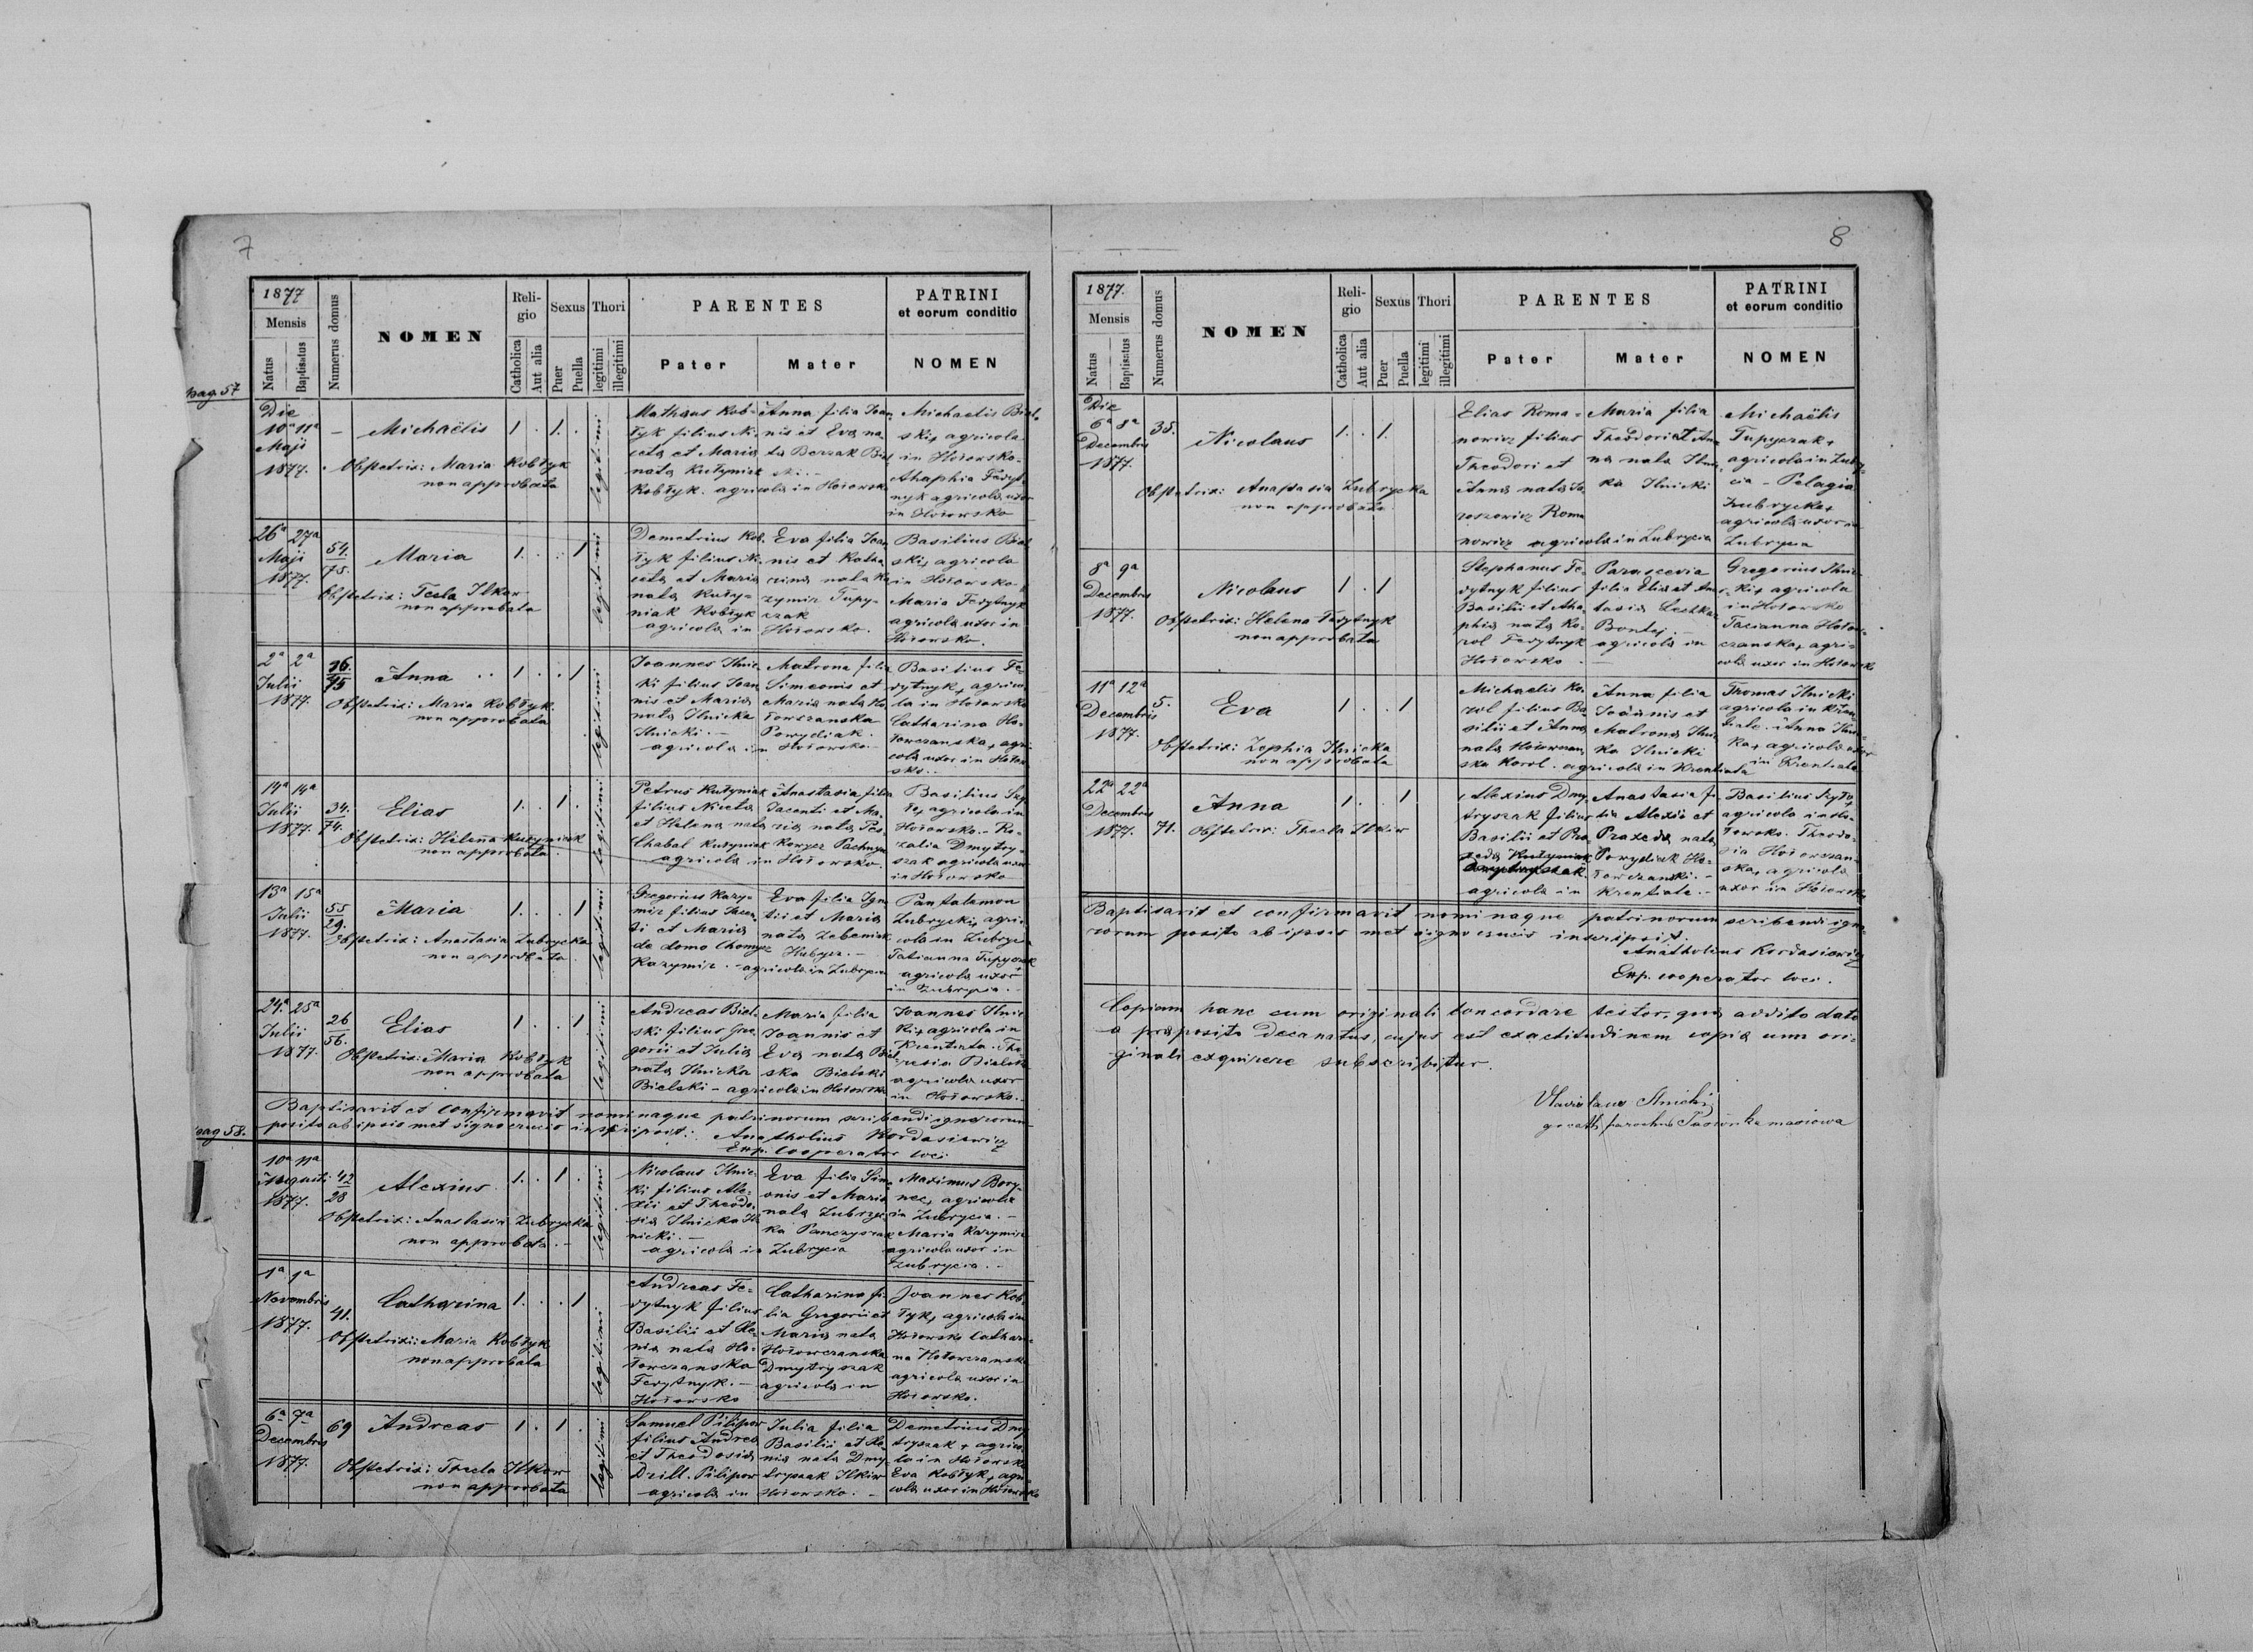 7
1877
Mensis
Natus
Baptisatus
Numerus domus
NOMEN
Reli-
gio
Catholica
Aut alia
Sexus
Puer
Puella
Thori
legitimi
illegitimi
PARENTES
Pater
Mater
PATRINI
et eorum conditio
NOMEN
pag. 57
Die
10ª 11ª
Maji
1877.
–
Michaëlis
1 . 1. .
Obstetrix: Maria Kobłyk
non approbata
legitimi
Mathaus Kob-
łyk filius Ni-
cetæ et Mariæ
nata Kutyniak
Kobłyk. agricola in Hołowsko
Anna filia Joan
nis et Eva na
ta Berzak Biel
ski. -
Michaelis Biel-
ski + agricola
in Hołowsko-
Ahaphia Fedyt-
nyk agricolæ uxor
in Hołowsko
26ª 27ª
Maji
1877.
54.
75.
Maria
1. . . 1
Obstetrix: Tecla Ilkow
non approbata
legitimi
Demetrius Kob-
łyk filius Ni-
cetæ et Mariæ
nata Kuty-
niak Kobłyk
agricola in Hołowsko.
Eva filia Joan
nis et Katha
rina nata Ka
zymir Tupy-
czak
Basilius Biel
ski + agricola
in Hołowsko
Maria Fedytnyk
agricolæ uxor in
Hołowsko.
2ª 2ª
Julii
1877.
16.
15
Anna ..
1 . . 1
Obstetrix: Maria Kobłyk.
non approbata
legitimi
Joannes Ilnic-
ki filius Joan
nis et Mariæ
nata Ilnicka
Ilnicki. -
agricola in Hołowsko
Matrona filia
Simeonis et
Mariæ nata Ho
łowczanska
Powydiak.
Basilius Fe-
dytnyk + agrico-
la in Hołowsko
Catharina Ho-
łowczanska + agri
cola uxor in Hołow
sko..
14ª 14ª
Julii
1877.
34.
74.
Elias
1. . 1.
Obstetrix: Helena Kutyniak
non approbata.
legitimi
Petrus Kutyniak
filius Nicetæ
et Helena nata
Chabal Kutyniak
agricola in Hołowsko.
Anastasia filia
Jacenti et Ma-
ria nata
Basilius
agricola in
Hołowsko. - Ro-
zalia Dmytry-
szak agricolæ uxor
in Hołowsko
13ª 15ª
Julii
1877.
55
29.
Maria
1. . . 1
Obstetrix: Anastasia Zubrycka
non approbata.
legitimi
Gregorius Kazy-
mir filius Jacen-
ti et Mariæ
de domo Chomyc
Kazymir. - agricola in Zubrycia
Eva filia Igna
tii et Mariæ
nata Zebeniak
Hubycz. -
Pantalemon
Zubrycki + agri-
cola in Zubrycia
Tatianna Tupyczak
agricolæ uxor +
in Zubrycia. -
24ª 25ª
Julii
1877.
26
56.
Elias
1 . . 1
Obstetrix: Maria Kobłyk
non approbata
legitimi
Andreas Biel-
ski filius Gre-
gorii et Julia
nata Ilnicka
Bielski - agricola in Hołowsko
Maria filia
Joannis et
Eva nata Biel
ska Bielski
Joannes Ilnic
ki + agricola in
Krentata. The-
resia Bielska
agricolæ uxor
in Hołowsko. -
Baptisavit et confirmavit nominaque patrinorum scribendi ignarorum
posito ab ipsis met signo crucis inscripsit: Anatholius Kordasiewicz
Exp. cooperator loci
pag 58.
10ª 11ª
Augusti
1877.
42
28
Alexius
1. . 1 .
Obstetrix: Anastasia Zubrycka
non approbata. -
legitimi
Nicolaus Ilnic-
ki filius Ale-
xii et Theodo-
sia Ilnicka Il
nicki. -
agricola in Zubrycia
Eva filia Sime
onis et Mariæ
nata Zubryc-
ka Panczyszak
Maximus Bory-
nec + agricola
in Zubrycia. -
Maria Kazymir
agricolæ uxor in
Zubrycia. -
1ª 1ª
Novembris
1877.
41.
Catharina
1. . . 1
Obstetrix: Maria Kobłyk
non approbata
legitimi
Andreas Fe-
dytnyk filius
Basilii et Ele-
nia nata Ho-
łowczanska
Fedytnyk. -
Hołowsko
Catharina fi-
lia Gregorii et
Mariæ nata
Hołowczanska
Dmytryszak
agricola in
Joannes Kob-
łyk + agricola in
Hołowsko Cathari-
na Hołowczanska
agricolæ uxor in
Hołowsko.
6ª 7ª
Decembris
1877.
69
Andreas
1 . 1 .
Obstetrix: Thecla Ilkow
non approbata
legitimi
Samuel Pilipow
filius Andreæ
et Theodosia
Drill. Pilipow
agricola in Hołowsko. -
Julia filia
Basilii et He
nia nata Dmy-
tryszak Ilkiw
Demetrius Dmy
tryszak + agrico-
la in Hołowsko
Eva Kobłyk + agri
cola uxor in Hołowsko
8
1877.
Mensis
Natus
Baptisatus
Numerus domus
NOMEN
Reli-
gio
Catholica
Aut alia
Sexus
Puer
Puella
Thori
legitimi
illegitimi
PARENTES
Pater
Mater
PATRINI
et eorum conditio
NOMEN
Die
6ª 8ª
Decembris
1877.
35.
Nicolaus
1. . 1.
Obstetrix: Anastasia Zubrycka
non approbata
Elias Roma-
nowicz filius
Theodori et
Anna nata Ja
roszewicz Roma
nowicz agricola in Zubrycia
Maria filia
Theodori et An
na nata Ilnic
ka Ilnicki
Michaëlis
Tupyczak +
agricola in Zubry-
cia - Pelagia
Zubrycka +
agricolæ uxor in
Zubrycia
8ª 9ª
Decembris
1877.
Nicolaus
1 . 1
Obstetrix: Helena Fedytnyk
non approbata
Stephanus Fe-
dytnyk filius
Basilii et Aha-
phia nata Ko-
rol Fedytnyk
Hołowsko.
Parascevia
filia Eliæ et Ana
tasia Leszka
Bontej. -
agricola in
Gregorius Ilnic
ki + agricola
in Hołowsko
Tacianna Hołow-
czanska + agri-
cola uxor in Hołowsko
11ª 12ª
Decembris
1877.
5.
Eva
1 . . 1
Obstetrix: Zophia Ilnicka
non approbata
Michaelis Ko-
rol filius Ba-
silii et Anna
nata Hołowczan
ska Korol. agricola in Krentiata
Anna filia
Joannis et
Matrona Ilnic
ka Ilnicki
Thomas Ilnicki
agricola in Kren-
tiata. Anna Ilnic
ka + agricolæ uxor
in Krentiata
22ª 22ª
Decembris
1877.
71.
Anna
1. . 1
Obstetrix: Thecla Ilkiw
Alexius Dmy-
tryszak filius
Basilii et Pra-
xeda Kutyniak
Dmytryszak.
agricola in Krentiata. -
Anastasia fi-
lia Alexii et
Praxeda nata
Powydiak Ho-
łowczanski. -
Basilius
agricola in Ho-
łowsko. Theodo-
sia Hołowczan-
ska + agricola
uxor in Hołowsko
Baptisavit et confirmavit nominaque patrinorum scribendi igna-
rorum posito ab ipsis met signo crucis inscripsit.
Anatholius Kordasiewicz
Exp. cooperator loci.
Copiam hanc cum originali concordare testor, qua addito dato
a præposito decanatus, cujus est exactitudinem copia cum ori-
ginali exquirere subscribitur.
Vladislaus Ilnicki
gr. cath. parochus Jasionka masiowa